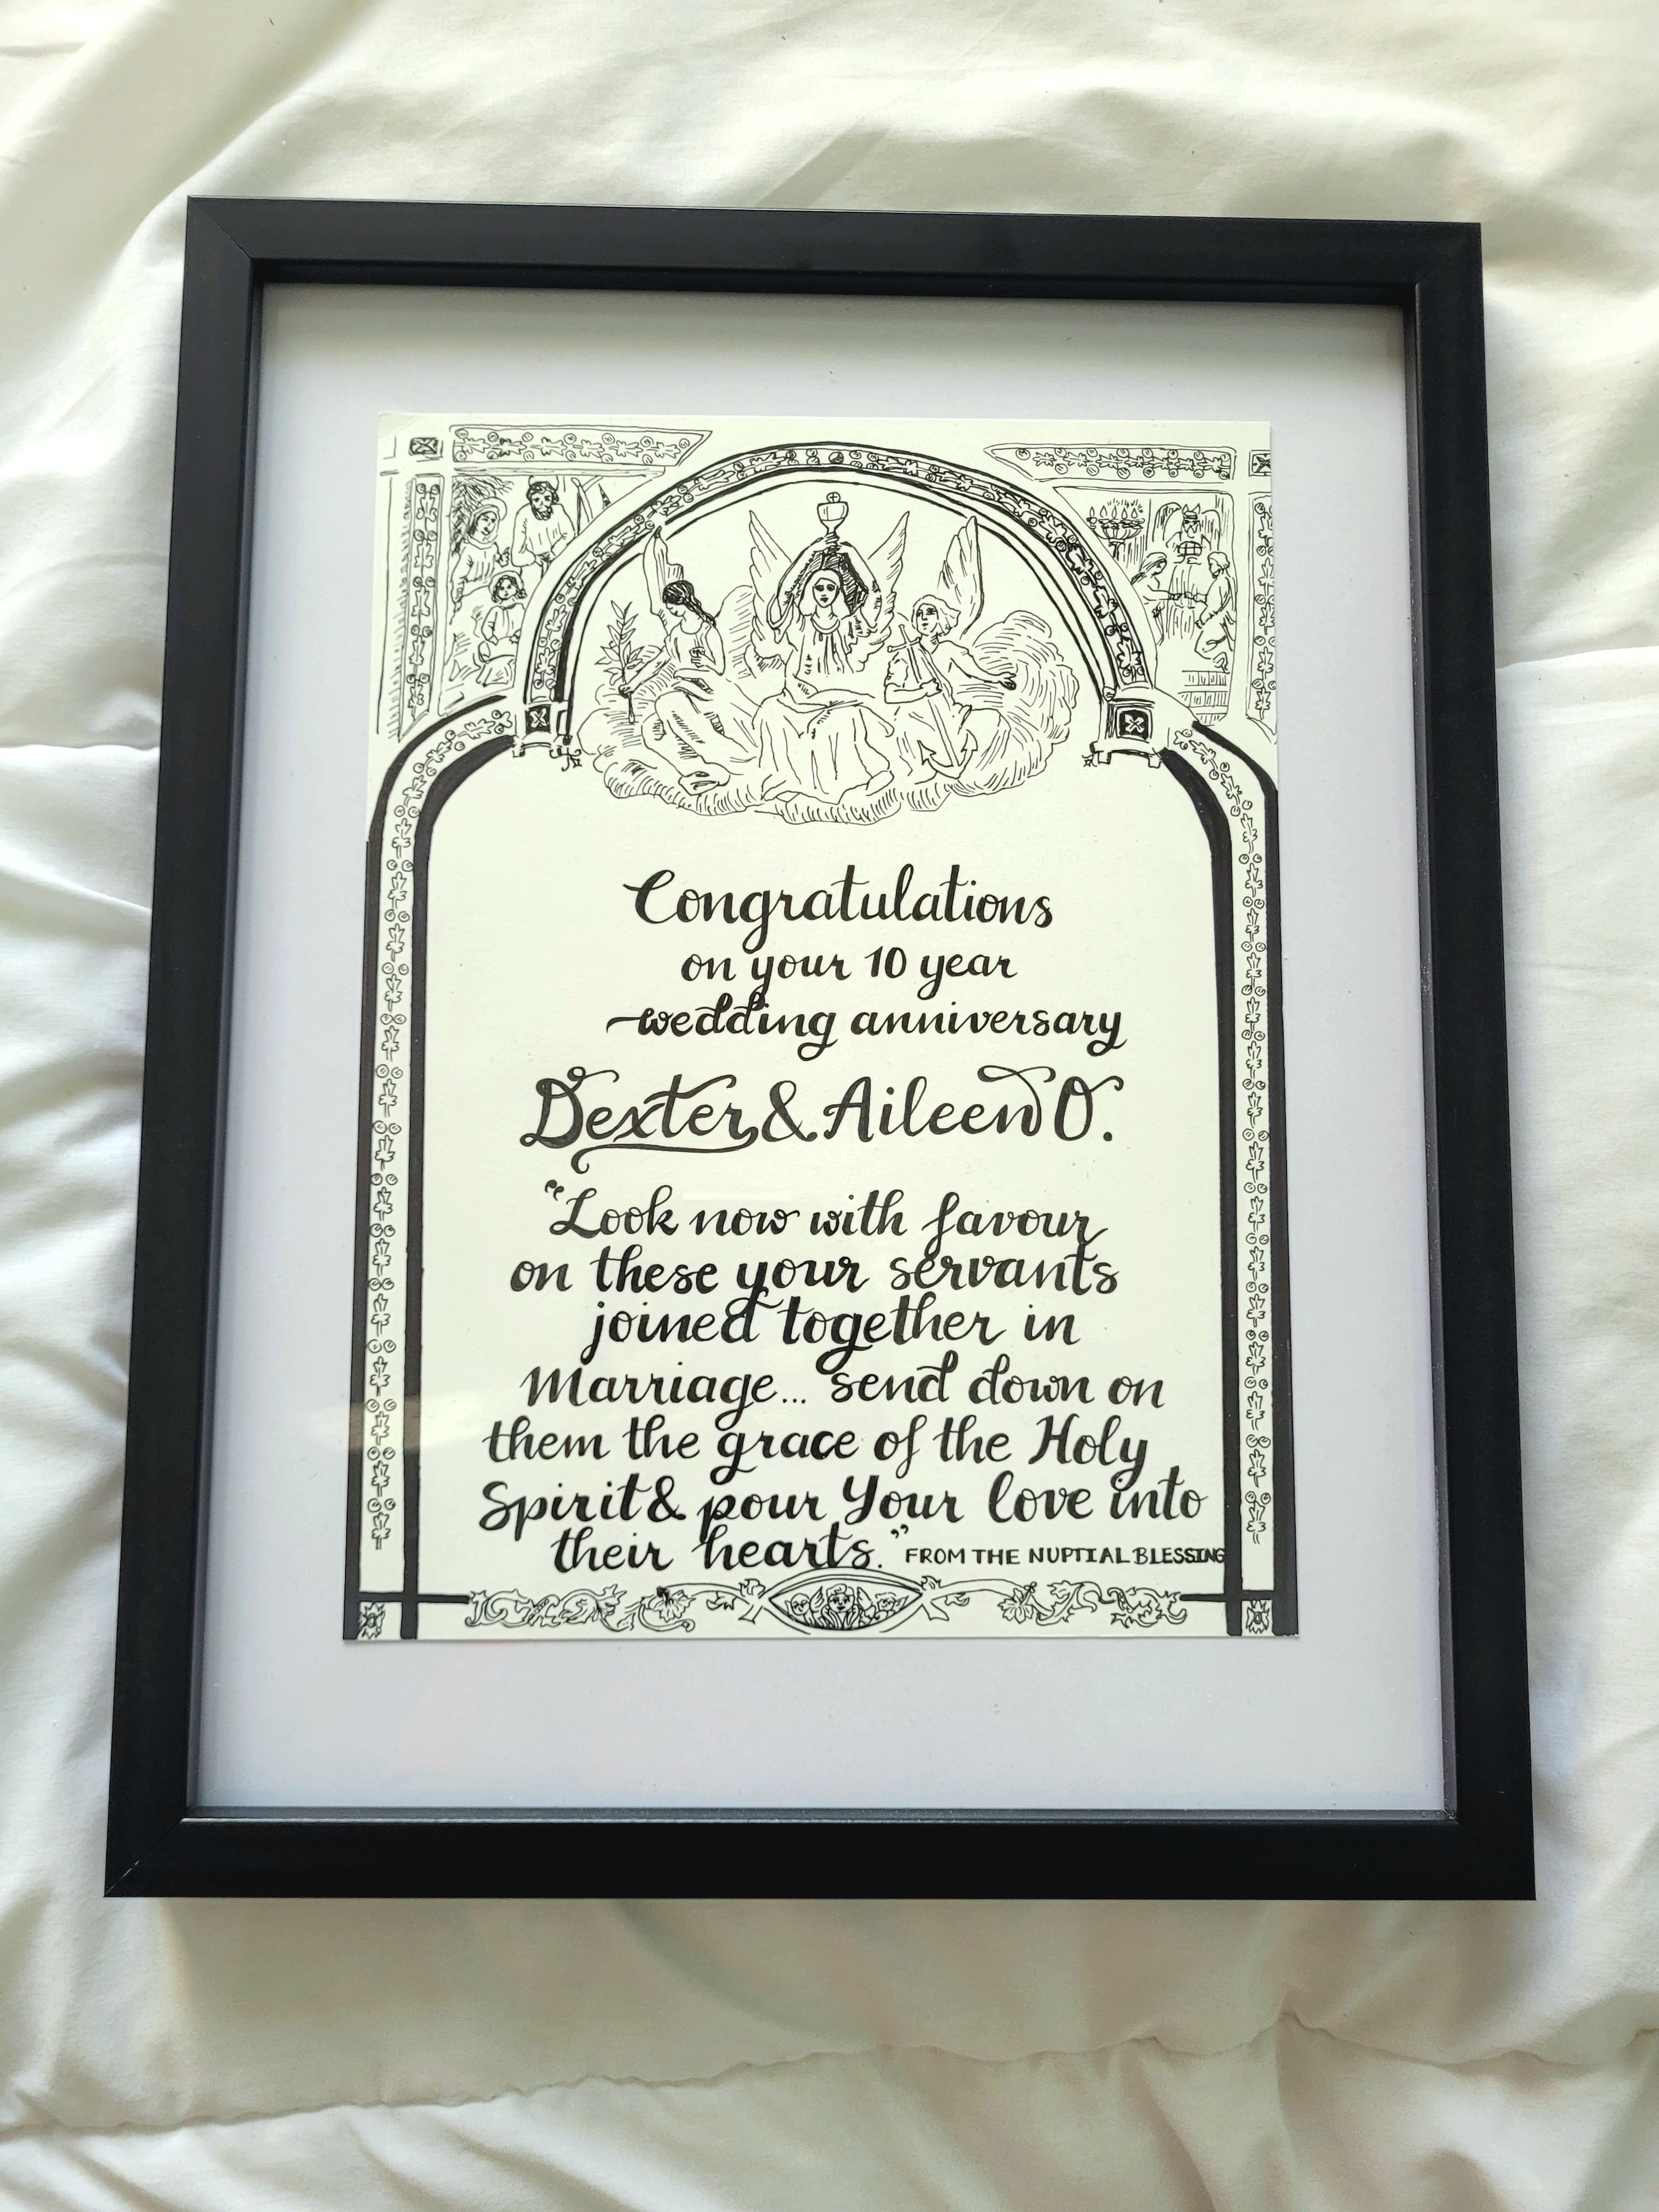 Congratulations
on your 10 year
wedding anniversary
Dexter & Aileen O.
"Look now with favour
on these your servants
joined together in
Marriage... send down on
them the grace of the Holy
Spirit & pour Your love into
their hearts." FROM THE NUPTIAL BLESSING